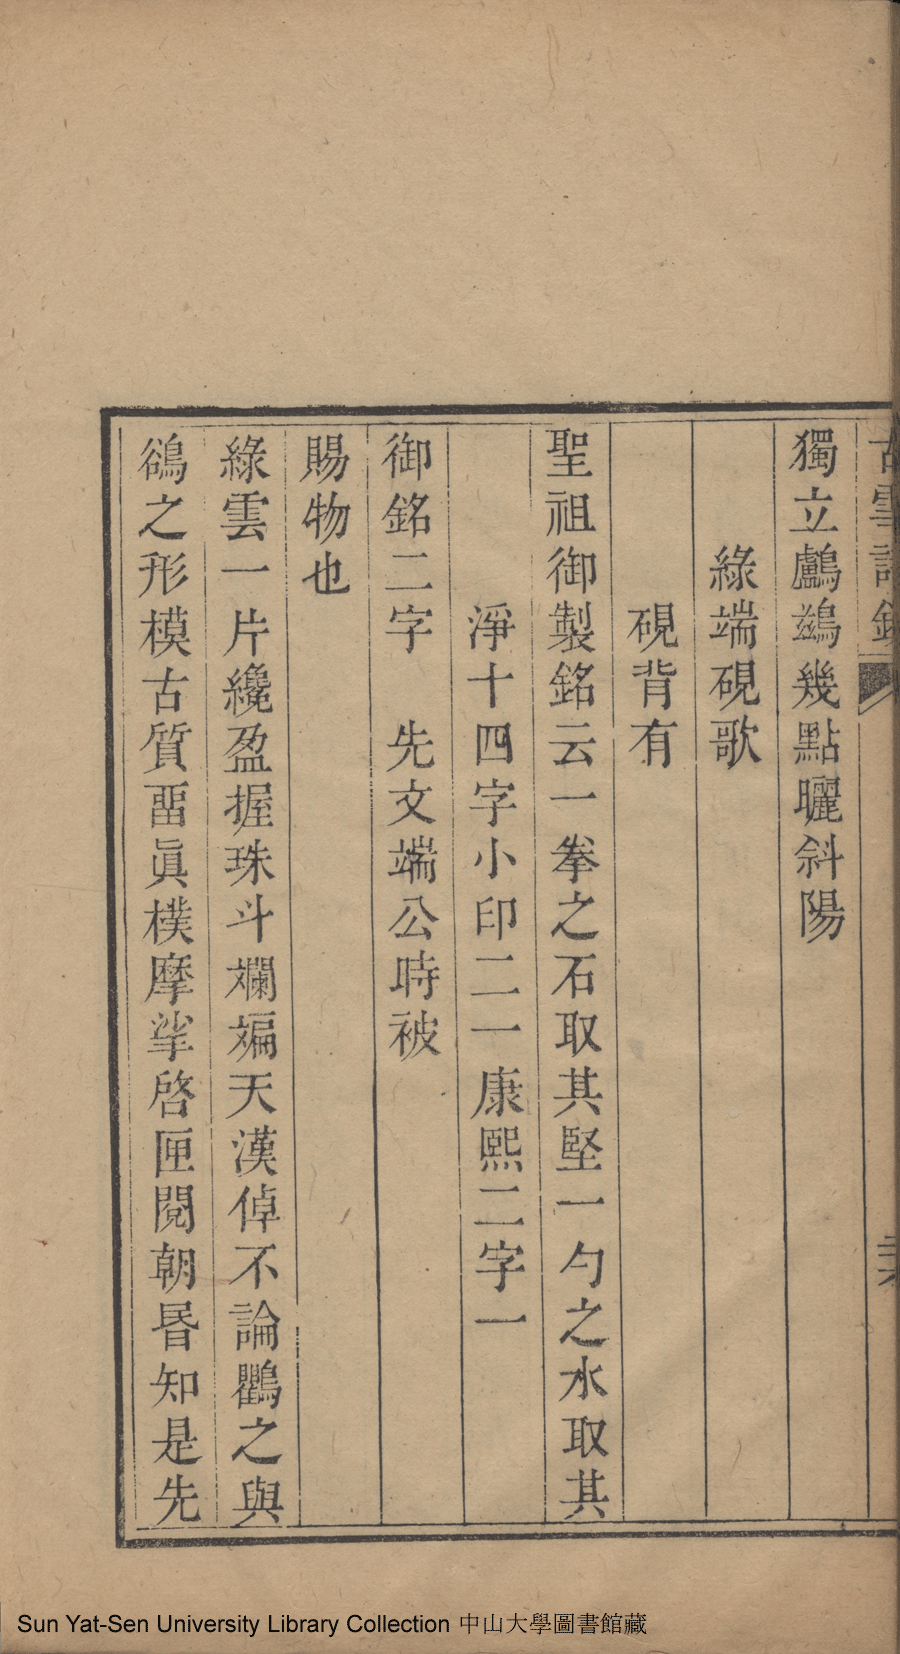 古雲詩
獨立鸕鷀幾點曬斜陽
綠端硯歌
硯背有
聖祖御製銘云一拳之石取其堅一勺之水取其
淨十四字小印二一康熙二字一
御銘二字　先文端公時被
賜物也
綠雲一片纔盈握珠斗斕斒天漢倬不論鸜之與
鵒之形模古質畱眞樸摩挲啓匣閱朝昬知是先
Sun Yat-Sen University Library Collection 中山大學圖書館藏